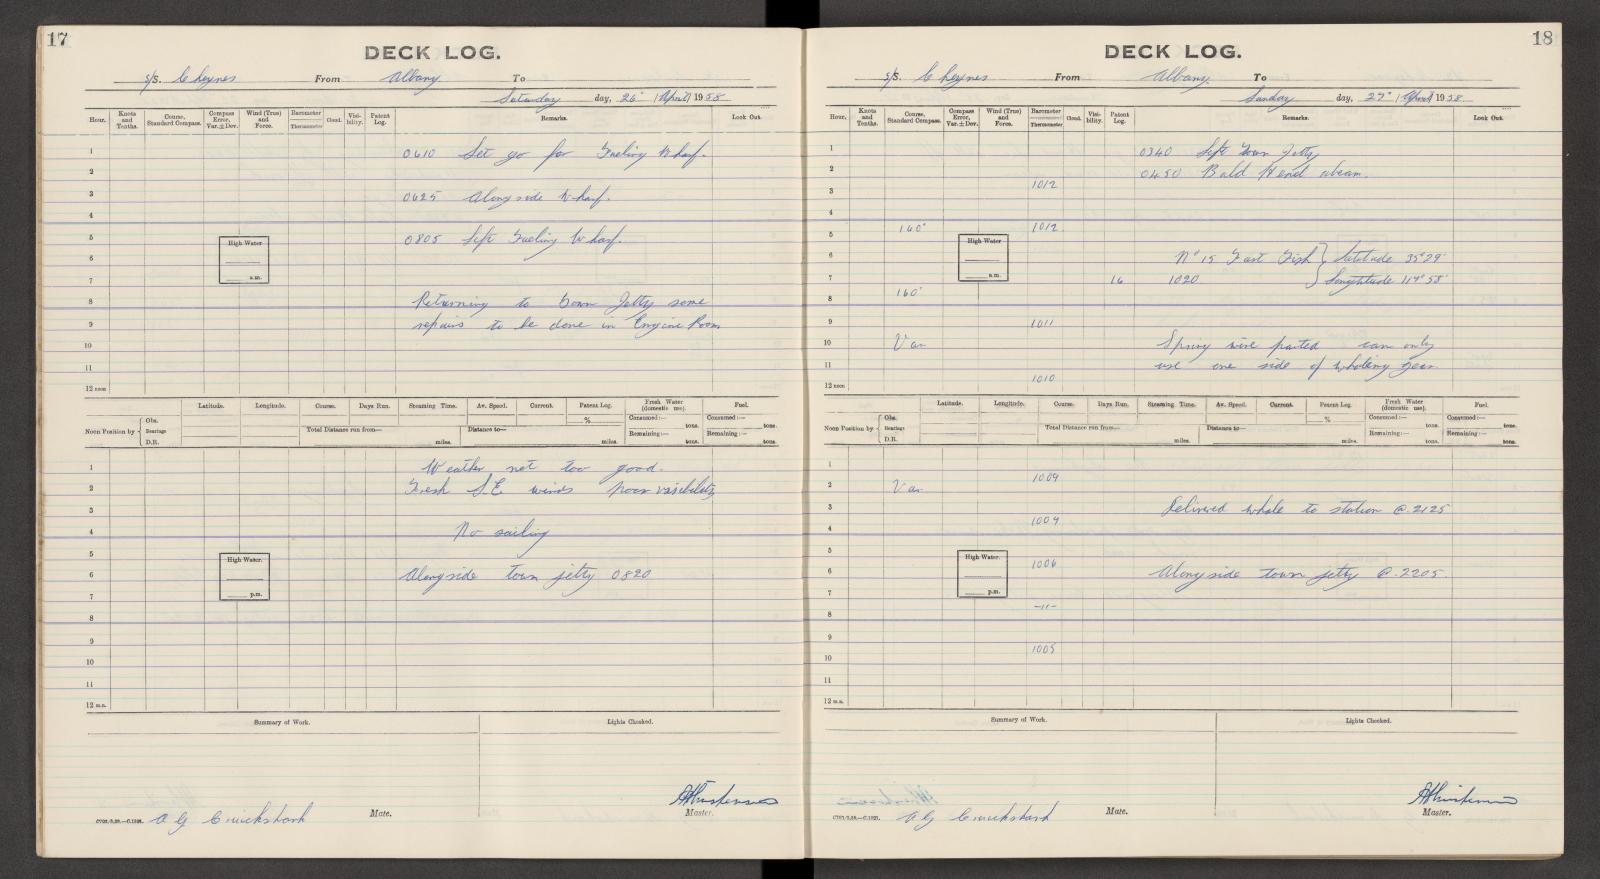 17
DECK LOG.
S/S. Cheynes From Albany To
Saturday day, 26° April 1958
Hour. Knots and Tenths. Course, Standard Compass. Compass Error, Var.±Dev. Wind (True) and Force. Barometer Thermometer Cloud. Visibility. Patent Log. Remarks. Look Out.
1 0610 Let go for Fueling Wharf.
2
3 0625 Alongside Wharf.
4
5 0805 Left Fueling Wharf.
High Water
6
7 a.m.
8 Returning to Town Jetty some
9 repairs to be done in Engine Room
10
11
12 noon
Latitude. Longitude. Course. Days Run. Steaming Time. Av. Speed. Current. Patent Log. Fresh Water (domestic use). Fuel.
Noon Position by Obs. Bearings D.R. Total Distance run from— miles. Distance to— miles. % Consumed:— tons. Remaining:— tons. Consumed:— tons. Remaining:— tons.
1 Weather not too good.
2 Fresh S.E winds poor visibility
3
4 No sailing
5
High Water.
6 Alongside town jetty 0820
7 p.m.
8
9
10
11
12 m.n.
Summary of Work. Lights Checked.
A G Cruickshank Mate. Master.
18
DECK LOG.
S/S. Cheynes From Albany. To
Sunday day, 27° April 1958.
Hour. Knots and Tenths. Course, Standard Compass. Compass Error, Var.±Dev. Wind (True) and Force. Barometer Thermometer Cloud. Visibility. Patent Log. Remarks. Look Out.
1 0340 Left Town Jetty
2 0450 Bald Head abeam.
3 1012
4
5 160° 1012
High Water
6 N° 15 Fast Fish } Latitude 35°29'
7 a.m. 16 1020 } Longtitude 117°58'
8 160°
9 1011
10 Var Spring wire parted can only
11 use one side of whaling gear.
12 noon 1010
Latitude. Longitude. Course. Days Run. Steaming Time. Av. Speed. Current. Patent Log. Fresh Water (domestic use). Fuel.
Noon Position by Obs. Bearings D.R. Total Distance run from— miles. Distance to— miles. % Consumed:— tons. Remaining:— tons. Consumed:— tons. Remaining:— tons.
1
2 Var 1009
3 Delivered whale to station @ 2125
4 1009
5
High Water.
6 1006 Alongside town jetty @ 2205.
7 p.m.
8 -11-
9
10 1005
11
12 m.n.
Summary of Work. Lights Checked.
A G Cruickshank Mate. Master.